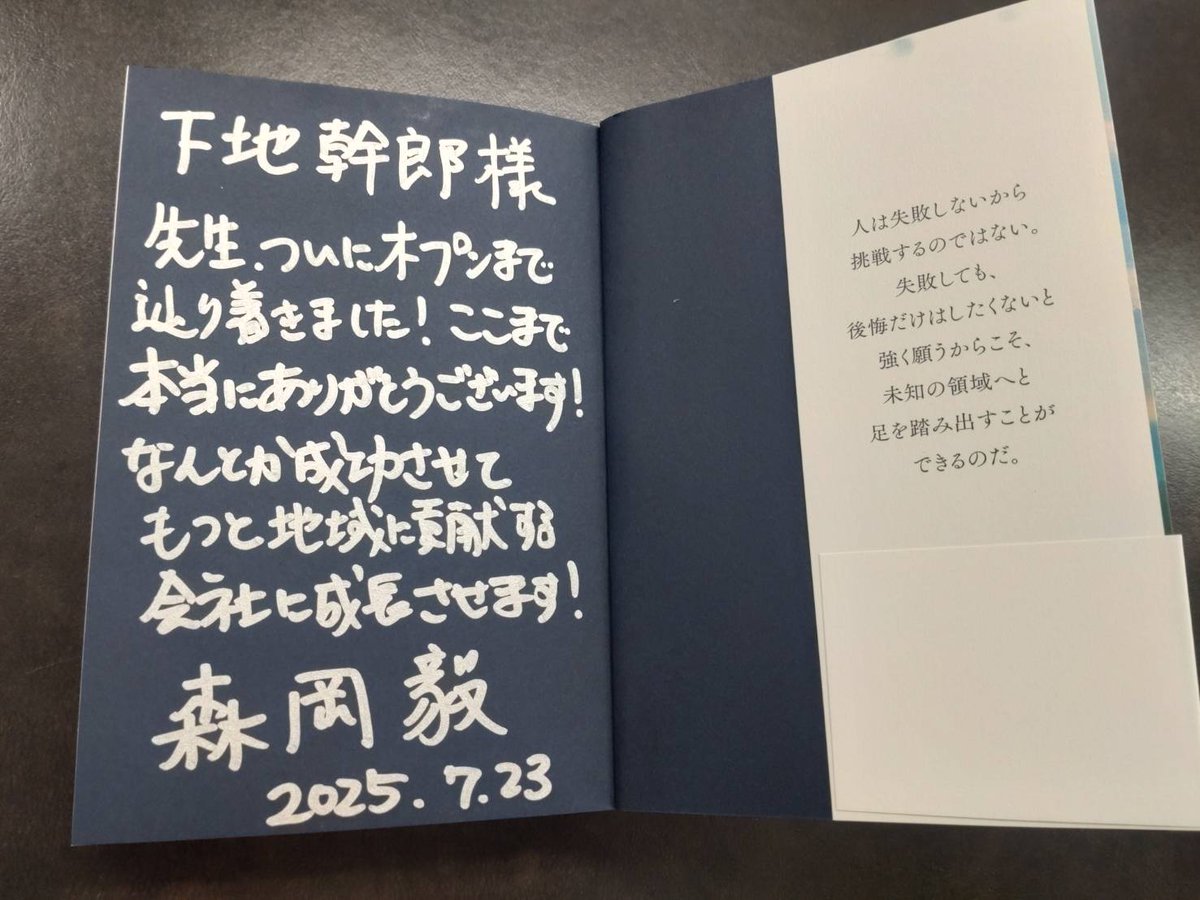 下地幹郎様
先生、ついにオープンまで
辿り着きました!ここまで
本当にありがとうございます!
なんとか成功させて
もっと地域に貢献する
会社に成長させます!
森岡毅
2025.7.23
人は失敗しないから
挑戦するのではない。
失敗しても、
後悔だけはしたくないと
強く願うからこそ、
未知の領域へと
足を踏み出すことが
できるのだ。